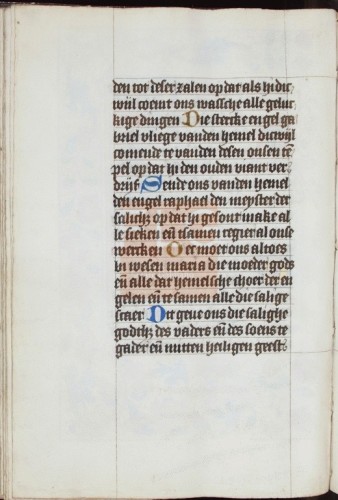 den tot deser zalen op dat als hi dic
wijl coemt ons wassche alle geluc
kige dingen Die stercke engel ga
briel vliege vanden hemel dicwijl
comende te vanden desen onsen tē
pel op dat hi den ouden viant ver
drijf Sende ons vanden hemel
den engel raphael den meyster der
salich op dat hi gesont make al
le sieken eñ tsamen regier al onse
wercken Oec moet ons altoes
bi wesen maria die moeder gods
eñ alle dat hemelsche choer der en
gelen eñ te samen alle die salige
scaer Dit geue ons die salighe
godth des vaders eñ des soens te
gader eñ mitten heiligen geest